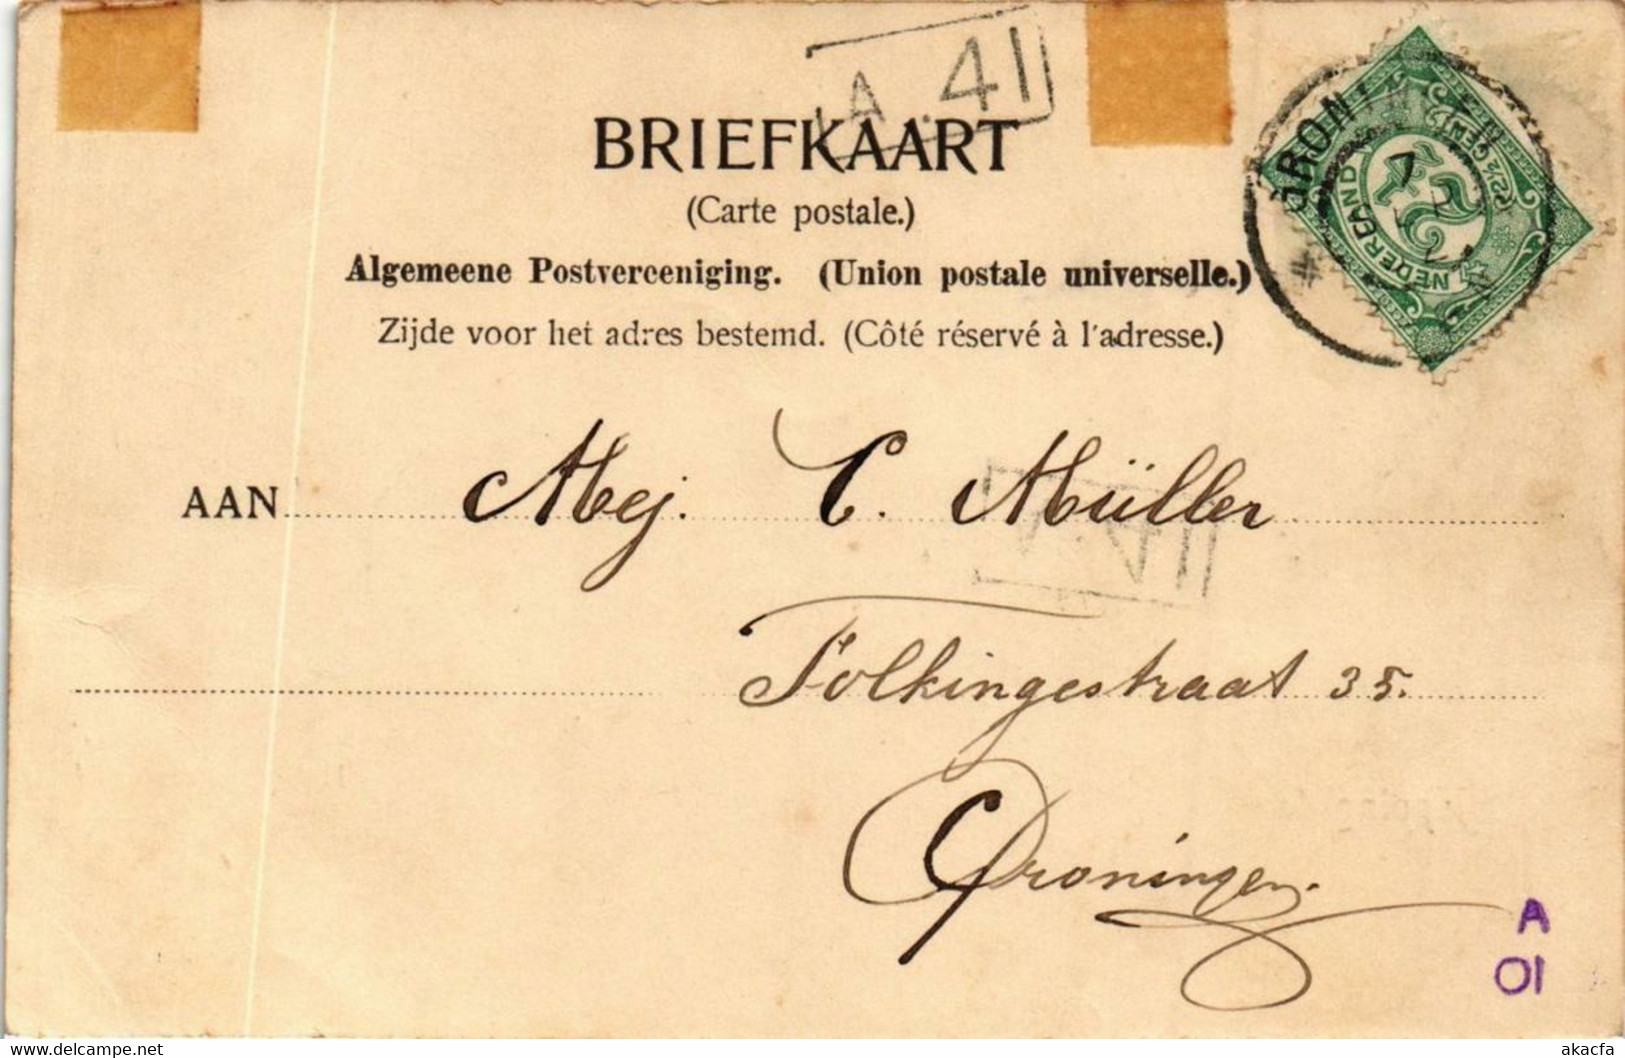 A. 41
BRIEFKAART
(Carte postale.)
Algemeene Postvereeniging. (Union postale universelle.)
Zijde voor het adres bestemd. (Côté réservé à l'adresse.)
NEDERLAND
2½ CENT
7
AAN Mej. C. Müller
Folkingestraat 35.
Groningen.
A
01
akacfa